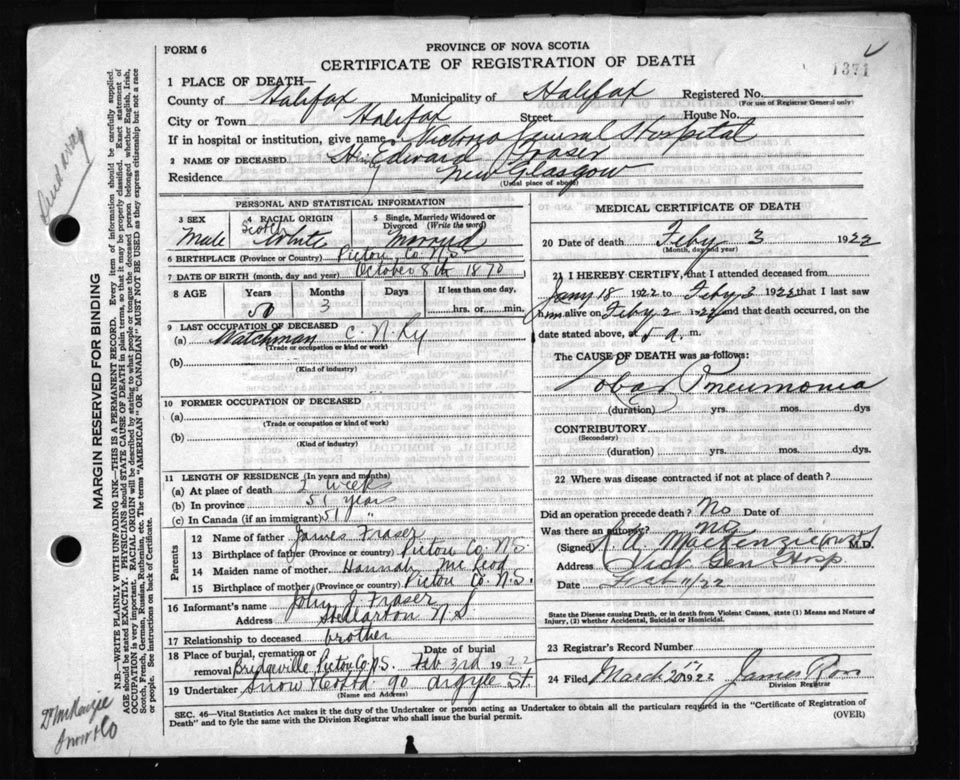 FORM 6
PROVINCE OF NOVA SCOTIA
CERTIFICATE OF REGISTRATION OF DEATH
1371
1 PLACE OF DEATH—
County of Halifax Municipality of Halifax Registered No.
(For use of Registrar General only)
City or Town Halifax Street House No.
If in hospital or institution, give name Victoria General Hospital
2 NAME OF DECEASED Edward Fraser
Residence New Glasgow
(Usual place of abode)
PERSONAL AND STATISTICAL INFORMATION
3 SEX Male
4 RACIAL ORIGIN Scotch White
5 Single, Married, Widowed or Divorced (Write the word) Married
6 BIRTHPLACE (Province or Country) Pictou Co. N.S
7 DATE OF BIRTH (month, day and year) October 8th 1870
8 AGE Years Months Days If less than one day,
50 3 hrs. or min.
9 LAST OCCUPATION OF DECEASED
(a) Watchman C. N. Ry
(Trade or occupation or kind of work)
(b)
(Kind of industry)
10 FORMER OCCUPATION OF DECEASED
(a)
(Trade or occupation or kind of work)
(b)
(Kind of industry)
11 LENGTH OF RESIDENCE (In years and months)
(a) At place of death 2 weeks
(b) In province 51 years
(c) In Canada (if an immigrant) 51 "
Parents
12 Name of father James Fraser
13 Birthplace of father (Province or country) Pictou Co. N.S
14 Maiden name of mother Hannah McLeod
15 Birthplace of mother (Province or country) Pictou Co. N.S.
16 Informant's name John J. Fraser
Address Stellarton N S
17 Relationship to deceased brother
18 Place of burial, cremation or removal Bridgeville Pictou Co N.S. Date of burial Feb 3rd 1922
19 Undertaker Snow 90 Argyle St.
(Name and Address)
MEDICAL CERTIFICATE OF DEATH
20 Date of death Feby 3 1922
(Month, day and year)
21 I HEREBY CERTIFY, that I attended deceased from
Jany 18 1922 to Feby 3 1922 that I last saw
him alive on Feby 2 1922 and that death occurred, on the
date stated above, at a. m.
The CAUSE OF DEATH was as follows:
Lobar Pneumonia
(duration) yrs. mos. dys
CONTRIBUTORY
(Secondary)
(duration) yrs. mos. dys
22 Where was disease contracted if not at place of death?
Did an operation precede death? No Date of
Was there an autopsy? No
(Signed) MacKenzie M.D.
Address Vict Gen Hosp
Date 11/22
State the Disease causing Death, or in death from Violent Causes, state (1) Means and Nature of
Injury, (2) whether Accidental, Suicidal or Homicidal.
23 Registrar's Record Number
24 Filed March 20 1922 James Ross
Division Registrar
SEC. 46—Vital Statistics Act makes it the duty of the Undertaker or person acting as Undertaker to obtain all the particulars required in the "Certificate of Registration of
Death" and to fyle the same with the Division Registrar who shall issue the burial permit.
(OVER)
MARGIN RESERVED FOR BINDING
N.B.—WRITE PLAINLY WITH UNFADING INK—THIS IS A PERMANENT RECORD. Every item of information should be carefully supplied.
AGE should be stated EXACTLY. PHYSICIANS should STATE CAUSE OF DEATH in plain terms, so that it may be properly classified. Exact statement of
OCCUPATION is very important. RACIAL ORIGIN will be described by stating to what people or tongue the deceased person belonged whether English, Irish,
Scotch, French, German, Russian, Ruthenian, etc. The terms "AMERICAN" OR "CANADIAN" MUST NOT BE USED as they express citizenship but not a race
or people. See instructions on back of Certificate.
Dr McKenzie
Snow & Co